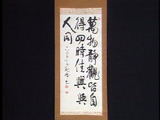 萬物静觀皆自
得四時佳興與
人同